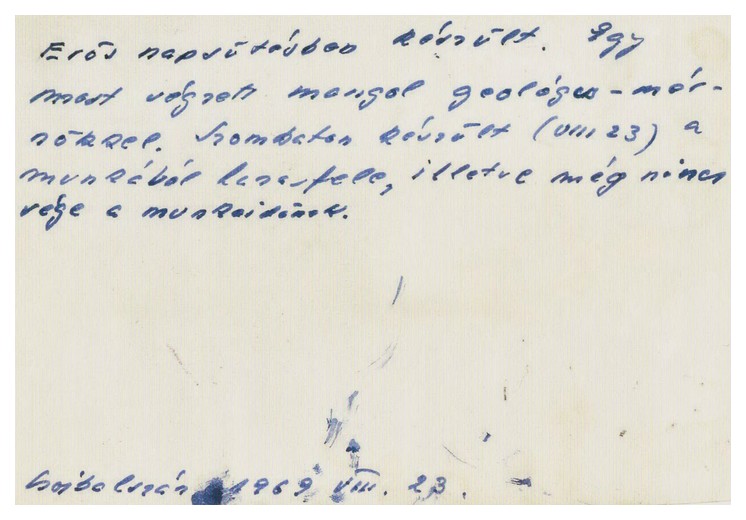 Erős napsütésben készült. Egy
most végzett mongol geológus-mér-
nökkel. Szombaton készült (VIII 23) a
munkából hazafele, illetve még nincs
vége a munkaidőnek.
Csojbalszán 1969 VIII. 23.